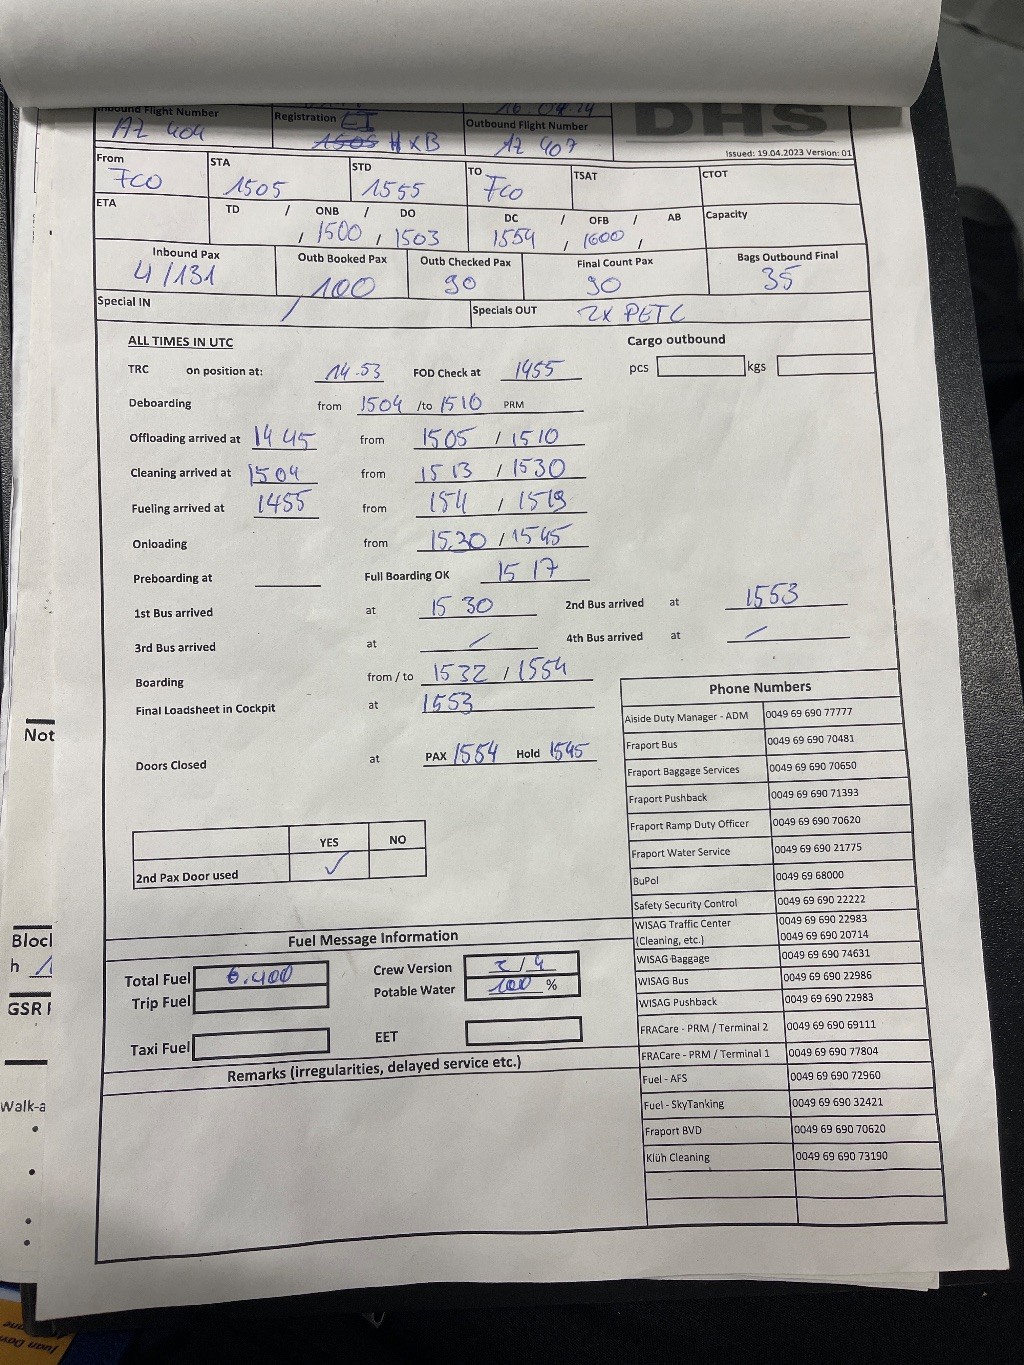 Inbound Flight Number Registration EI 16.04.24 DHS
AZ 404 HXB Outbound Flight Number AZ 407
Issued: 19.04.2023 Version: 01
From FCO STA 1505 STD 1555 TO FCO TSAT CTOT
ETA TD / ONB / DO DC / OFB / AB Capacity
, 1500 , 1503 1554 , 1600 ,
Inbound Pax Outb Booked Pax Outb Checked Pax Final Count Pax Bags Outbound Final
4/131 100 90 90 35
Special IN / Specials OUT 2x PETC
ALL TIMES IN UTC Cargo outbound
TRC on position at: 14.53 FOD Check at 1455 pcs kgs
Deboarding from 1504 /to 1510 PRM
Offloading arrived at 1445 from 1505 / 1510
Cleaning arrived at 1504 from 1513 / 1530
Fueling arrived at 1455 from 1511 / 1519
Onloading from 1530 / 1545
Preboarding at Full Boarding OK 1517
1st Bus arrived at 1530 2nd Bus arrived at 1553
3rd Bus arrived at / 4th Bus arrived at /
Boarding from / to 1532 / 1554
Final Loadsheet in Cockpit at 1553
Doors Closed at PAX 1554 Hold 1545
YES NO
2nd Pax Door used ✓
Phone Numbers
Aiside Duty Manager - ADM 0049 69 690 77777
Fraport Bus 0049 69 690 70481
Fraport Baggage Services 0049 69 690 70650
Fraport Pushback 0049 69 690 71393
Fraport Ramp Duty Officer 0049 69 690 70620
Fraport Water Service 0049 69 690 21775
BuPol 0049 69 68000
Safety Security Control 0049 69 690 22222
WISAG Traffic Center 0049 69 690 22983
(Cleaning, etc.) 0049 69 690 20714
WISAG Baggage 0049 69 690 74631
WISAG Bus 0049 69 690 22986
WISAG Pushback 0049 69 690 22983
FRACare - PRM / Terminal 2 0049 69 690 69111
FRACare - PRM / Terminal 1 0049 69 690 77804
Fuel - AFS 0049 69 690 72960
Fuel - SkyTanking 0049 69 690 32421
Fraport BVD 0049 69 690 70620
Klüh Cleaning 0049 69 690 73190
Fuel Message Information
Total Fuel 6.400 Crew Version 2/4
Trip Fuel Potable Water 100 %
Taxi Fuel EET
Remarks (irregularities, delayed service etc.)
Not
Bloc
h
GSR
Walk-a